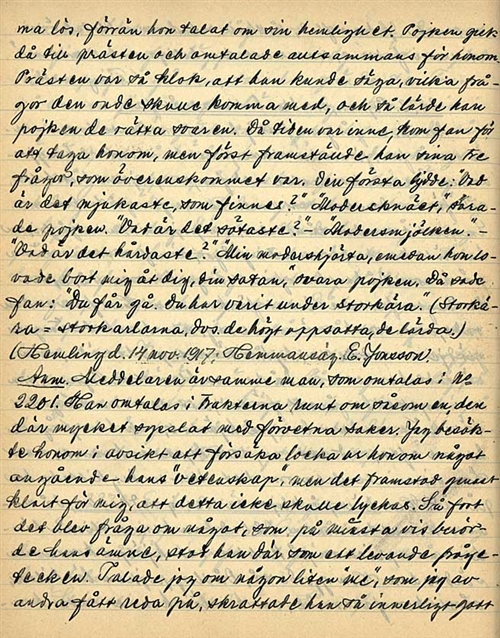 ma lös, förrän hon talat om sin hemlighet. Pojken gick
då till prästen och omtalade alltsammans för honom.
Prästen var så klok, att han kunde säga, vilka frå-
gor den onde skulle komma med, och så lärde han
pojken de rätta svaren. Då tiden var inne, kom fan för
att taga honom, men först framställde han sina tre
frågor, som överenskommet var. Den första lydde: "Vad
är det mjukaste, som finnes?" "Modersknäet," svara-
de pojken. "Vad är det sötaste?" - "Modersmjölken." -
"Vad är det hårdaste?" "Min moders hjärta, emedan hon lo-
vade bort mig åt dig, din satan," svara pojken. Då sade
fan: "Du får gå. Du har verit under storkära." (Storkä-
ra = storkarlarna, dvs. de högt uppsatta, de lärda.)
(Hemlingyd. 14 nov. 1917. Hemmansäg. E. Jonsson.)
Anm. Meddelaren är samme man, som omtalas i No
2201. Han omtalas i trakterna runt om såsom en, den
där mycket sysslat med förvetna saker. Jag besök-
te honom i avsikt att försöka locka ur honom något
angående hans "vetenskap", men det framstod genast
klart för mig, att detta icke skulle lyckas. Så fort
det blev fråga om något, som på minsta vis berör-
de hans ämne, stod han där som ett levande fråge-
tecken. Talade jag om någon liten "me", som jag av
andra fått reda på, skrattade han så innerligt gott